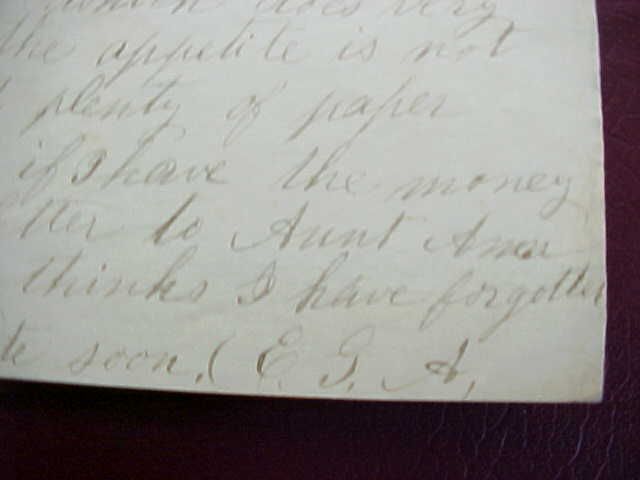 which does very
the appetite is not
plenty of paper
if I have the money
tter to Aunt Ann
thinks I have forgotten
te soon. ( E. G. A,